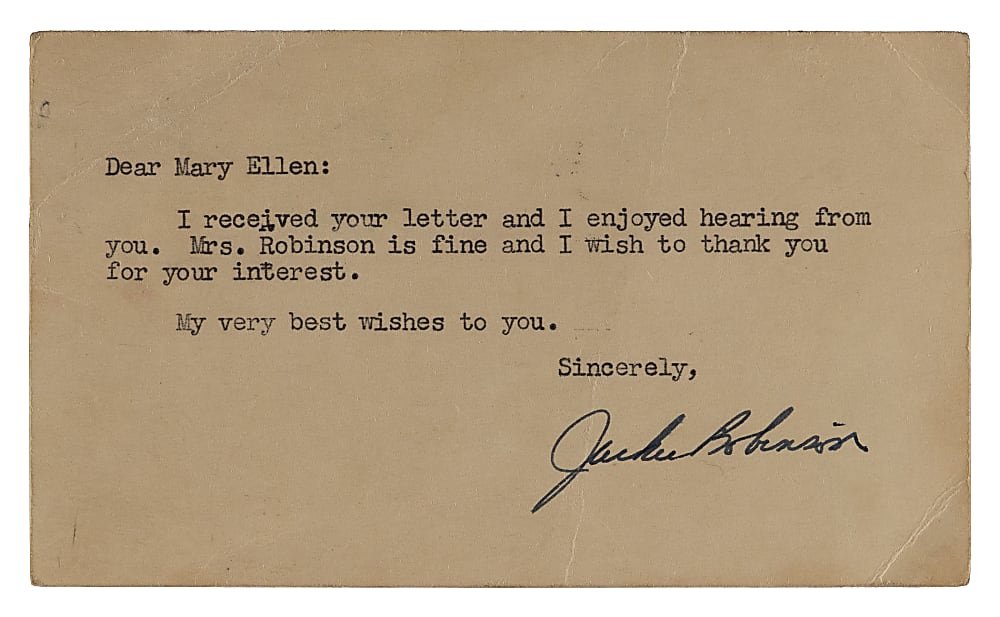 Dear Mary Ellen:
I received your letter and I enjoyed hearing from
you. Mrs. Robinson is fine and I wish to thank you
for your interest.
My very best wishes to you.
Sincerely,
Jackie Robinson